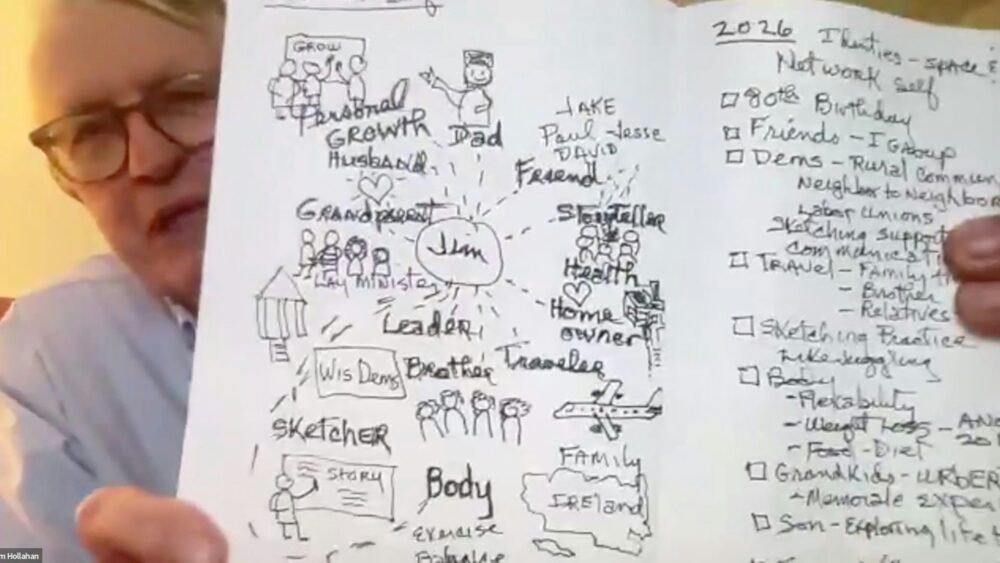 GROW
Personal
GROWTH
HUSBAND
Dad
JAKE
Paul - Jesse
DAVID
Friend
GRANDparent
Jim
Storyteller
LAY MINISTER
Health
Home
owner
Leader
Wis Dems
Brother
Traveler
SKETCHER
STORY
Body
Exercise
FAMILY
IRELand
2026 Identies - space &
Network Self
80th Birthday
Friends - I Group
Dems - Rural Commun
Neighbor to Neighbor
Labor Unions
Sketching support
Communicati
TRAVEL - Family
- Brother
- Relatives
Sketching Practice
Like juggling
Body
- Flexability
- Weight Loss -
- Food - Diet
GrandKids -
- Memorale Expen
Son - Exploring life
m Hollahan